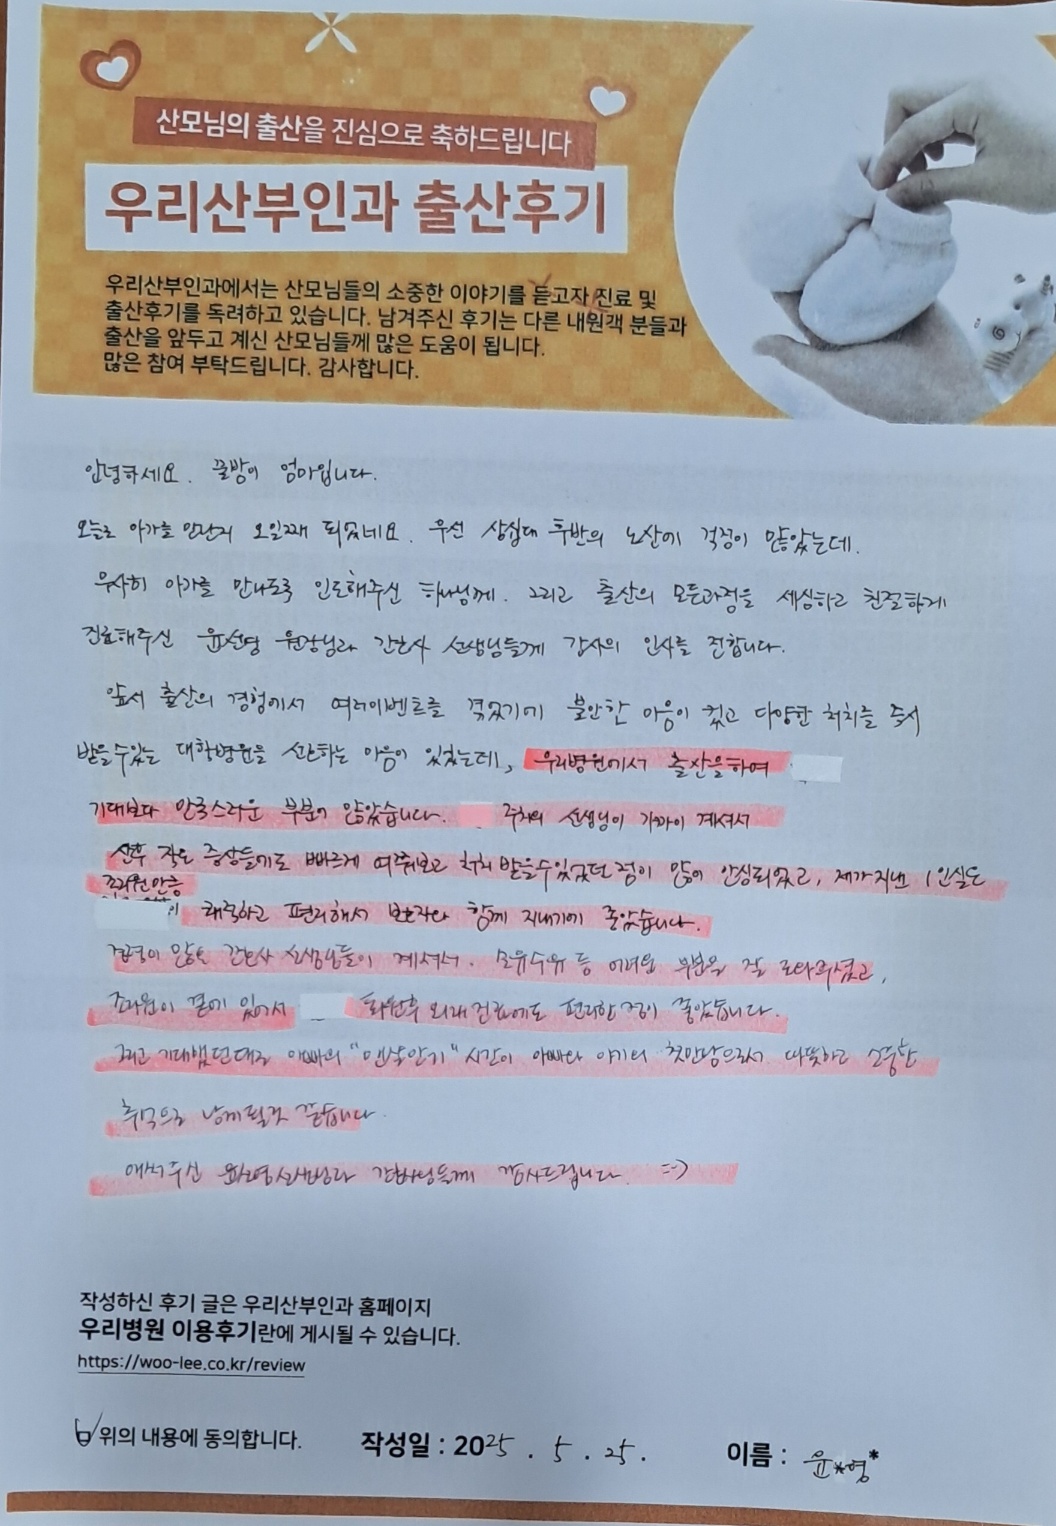 산모님의 출산을 진심으로 축하드립니다
우리산부인과 출산후기
우리산부인과에서는 산모님들의 소중한 이야기를 듣고자 진료 및
출산후기를 독려하고 있습니다. 남겨주신 후기는 다른 내원객 분들과
출산을 앞두고 계신 산모님들께 많은 도움이 됩니다.
많은 참여 부탁드립니다. 감사합니다.
안녕하세요. 꿀방이 엄마입니다.
오늘로 아가를 만난지 오일째 되었네요. 우선 삼십대 후반의 노산에 걱정이 많았는데.
무사히 아가를 만나도록 인도해주신 하나님께. 그리고 출산의 모든과정을 세심하고 친절하게
진료해주신 윤선영 원장님과 간호사 선생님들께 감사의 인사를 전합니다.
앞서 출산의 경험에서 여러이벤트를 겪었기에 불안한 마음이 컸고 다양한 처치를 즉시
받을수있는 대학병원을 선호하는 마음이 있었는데, 우리병원에서 출산을하여
기대보다 만족스러운 부분이 많았습니다. 주치의 선생님이 가까이 계셔서
산후 작은 증상들에도 빠르게 여쭤보고 처치 받을수있었던 점이 많이 안심되었고, 제가지낸 1인실은
조리원만큼
이 쾌적하고 편리해서 보호자와 함께 지내기에 좋았습니다.
경험이 많은 간호사 선생님들이 계셔서. 모유수유 등 어려운 부분을 잘 도와주셨고,
조리원이 곁에 있어서 퇴원후 외래 진료에도 편리한 점이 좋았습니다.
그리고 기대했던대로 아빠의 "맨살안기" 시간이 아빠와 아기의 첫만남으로서 따뜻하고 소중한
추억으로 남게될것 같습니다.
애써주신 윤선영선생님과 간호사님들께 감사드립니다. :-)
작성하신 후기 글은 우리산부인과 홈페이지
우리병원 이용후기란에 게시될 수 있습니다.
https://woo-lee.co.kr/review
위의 내용에 동의합니다. 작성일 : 2025 . 5 . 25 . 이름 : 윤*영*